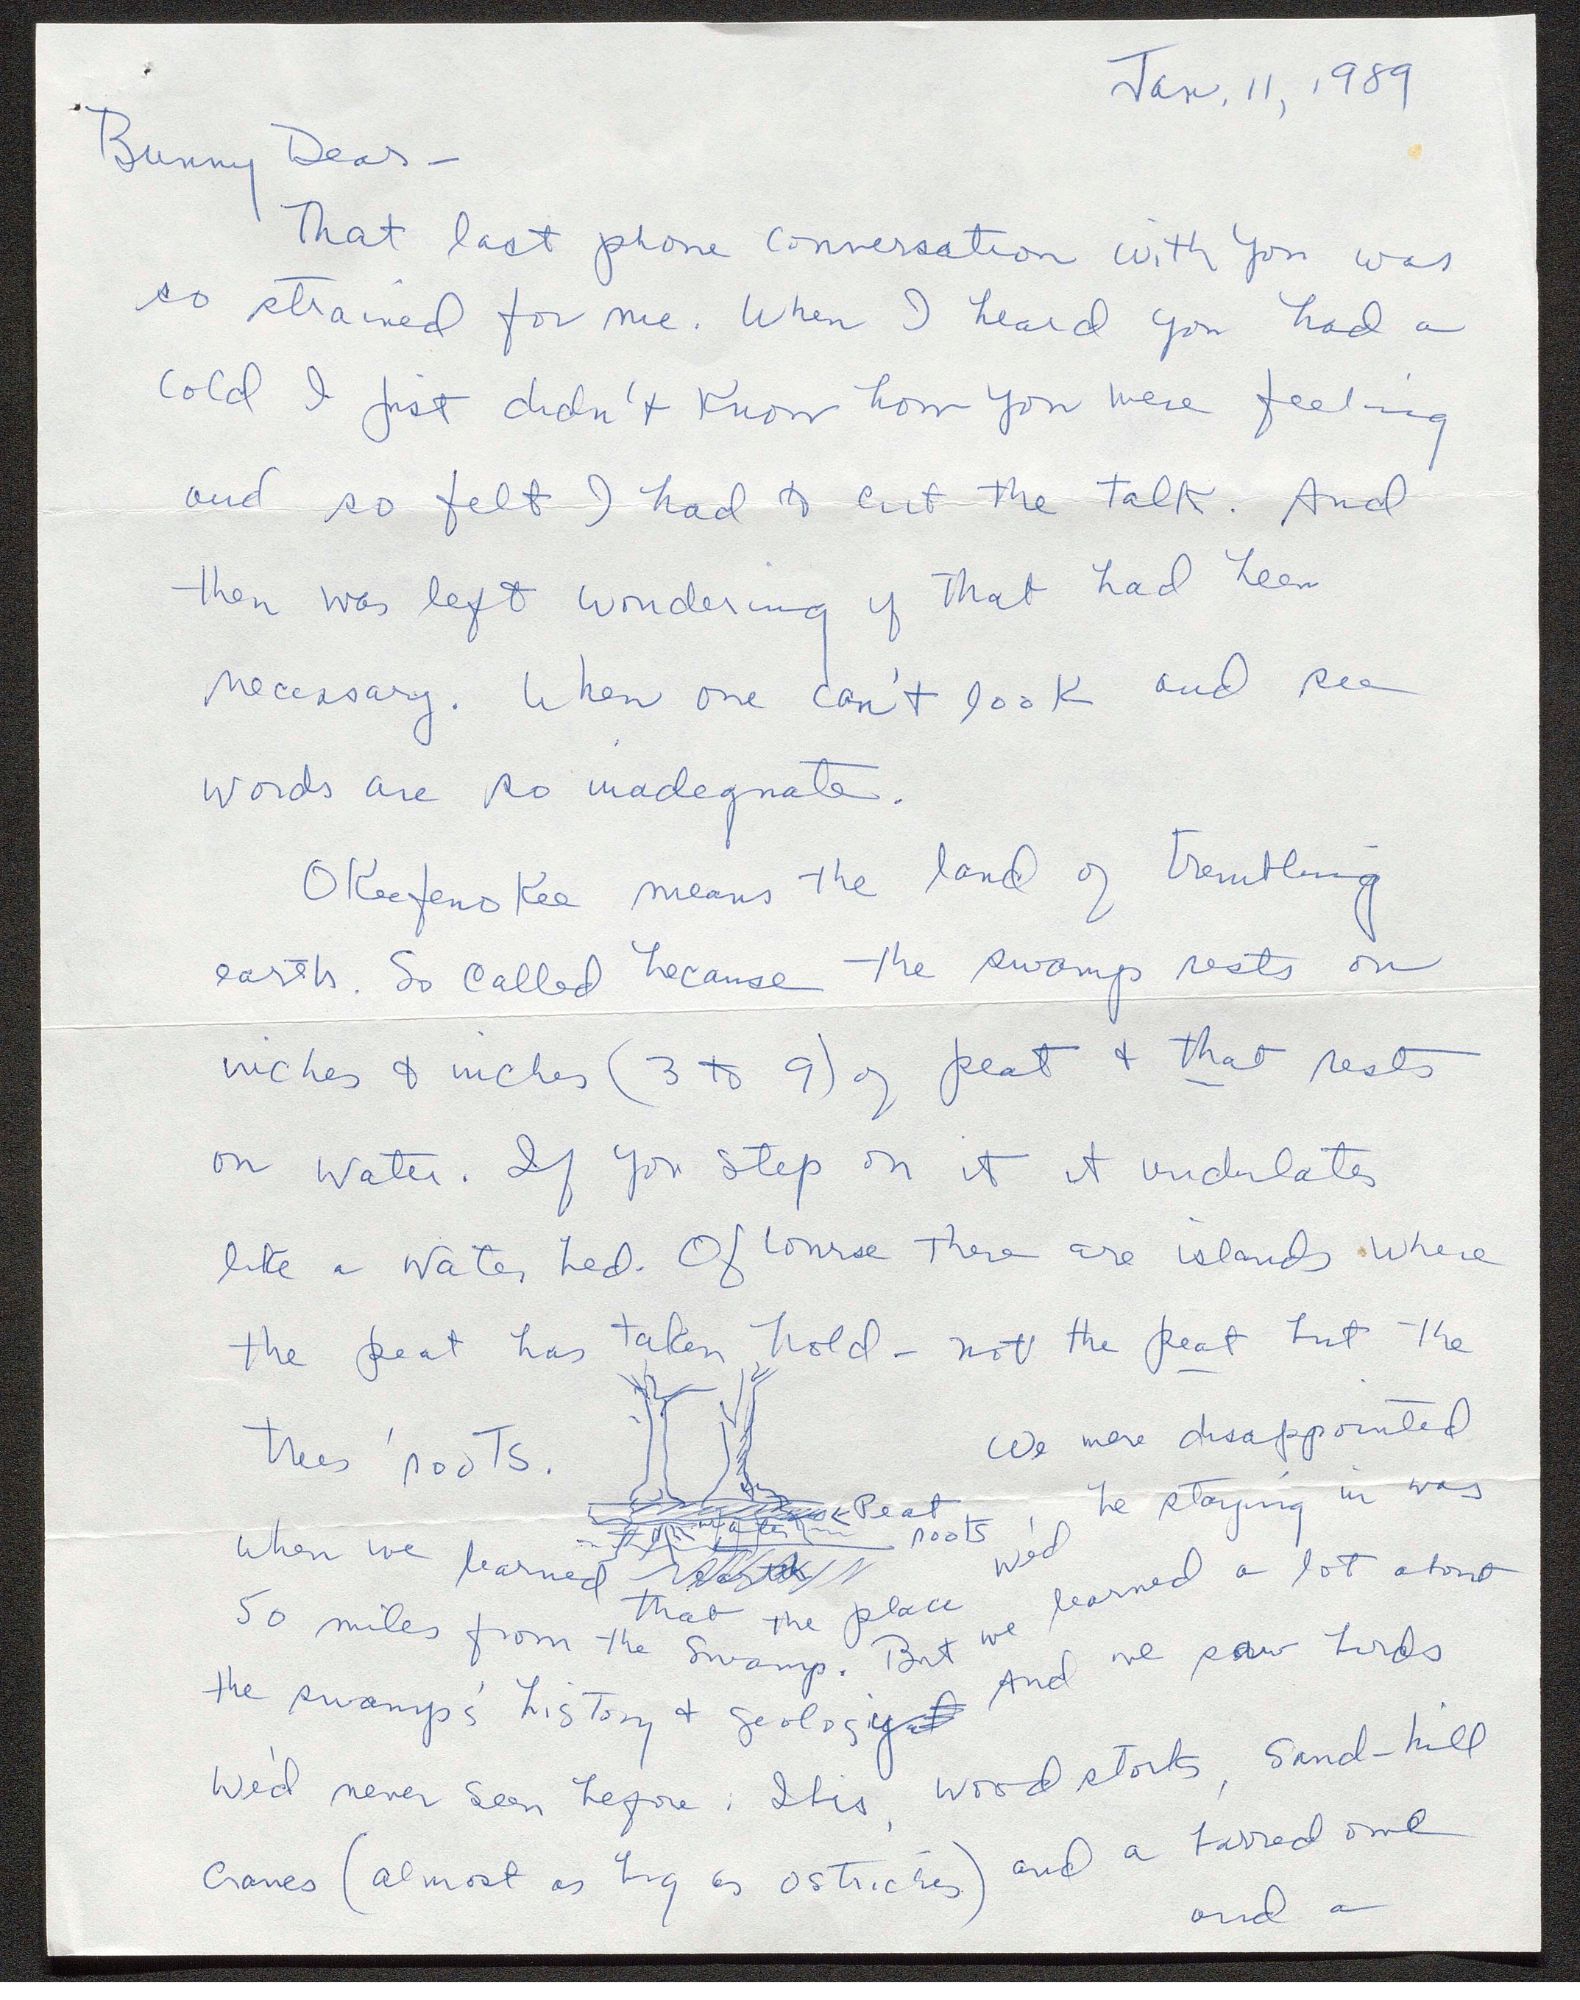 Jan. 11, 1989
Bunny Dear –
That last phone conversation with you was
so strained for me. When I heard you had a
cold I just didn't know how you were feeling
and so felt I had to cut the talk. And
then was left wondering if that had been
necessary. When one can't look and see
words are so inadequate.
Okeefenokee means the land of trembling
earth. So called because the swamp rests on
inches & inches (3 to 9) of peat & that rests
on water. If you step on it it undulates
like a water bed. Of course there are islands where
the peat has taken hold – not the peat but the
trees' roots. We were disappointed
Peat
water
roots
earth
when we learned that the place we'd be staying in was
50 miles from the swamp. But we learned a lot about
the swamp's history & geology And we saw birds
We'd never seen before. Ibis, wood storks, sand-hill
cranes (almost as big as ostriches) and a barred owl
and a